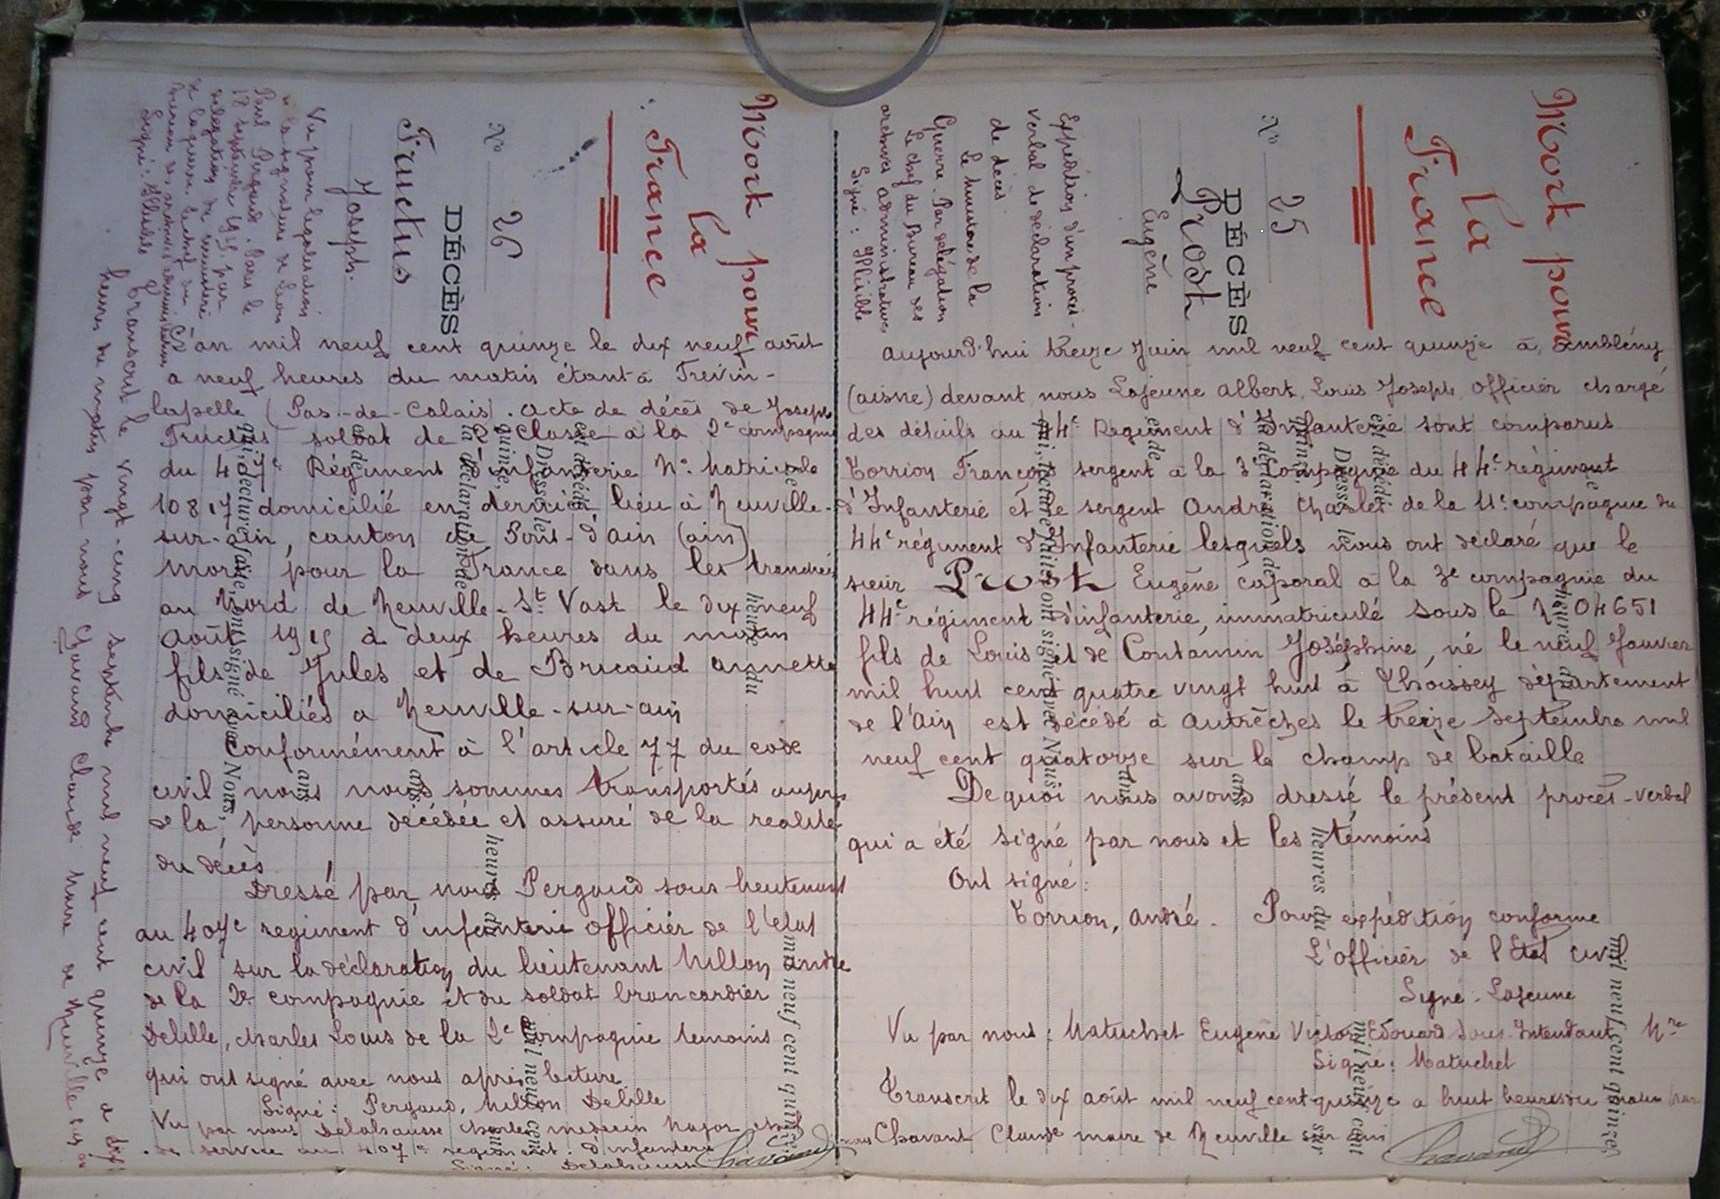 Mort pour
la
France
N° 26
DÉCÈS
Fructus
Joseph.
Vu pour légalisation
de la signature de Mon
Paul Pergaud. Paris le
18 septembre 1915. par
délégation du ministre
de la guerre le chef du
Bureau des archives administratives
Signé: Illisible
L'an mil neuf cent quinze le dix neuf août
a neuf heures du matin étant à Trévin-
Capelle (Pas-de-Calais). acte de décès de Joseph
Fructus soldat de 2e Classe à la 2e compagnie
du 407e Régiment d'infanterie N° Matricule
10817 domicilié en dernier lieu à Neuville-
sur-ain, canton de Pont-d'ain (ain)
mort pour la France dans les tranchées
au Nord de Neuville-St Vast le dix neuf
août 1915 à deux heures du matin
fils de Jules et de Bricaud annette
domiciliés a Neuville-sur-ain
Conformément à l'article 77 du code
civil nous nous sommes transportés auprès
de la personne décédée et assuré de la réalité
du décès
Dressé par nous Pergaud sous lieutenant
au 407e regiment d'infanterie officier de l'état
civil sur la déclaration du lieutenant Millon andre
de la 2e compagnie et du soldat brancardier
Delille, charles Louis de la 2e compagnie temoins
qui ont signé avec nous après lecture
Signé: Pergaud, Millon Delille
Vu par nous Delahausse charles medecin Major chef
de service au 407e regiment d'infanterie
Signé: Delahausse
transcrit le vingt-cinq septembre mil neuf cent quinze a dix
heures du matin par nous Chavand Claude Maire de Neuville sur ain
Chavand
Mort pour
la
France
N° 25
DÉCÈS
Prost
Eugène
Expédition d'un procès-
verbal de déclaration
de décès
Le ministre de la
Guerre. Par délégation
Le chef du Bureau des
archives administratives
Signé: Illisible
aujourd'hui treize Juin mil neuf cent quinze à ambleny
(aisne) devant nous Lajeune albert, Louis Joseph officier chargé
des détails au 44e Regiment d'Infanterie sont comparus
Corrion François sergent à la 3e compagnie du 44e régiment
d'Infanterie et le sergent André Charles de la 11e compagnie du
44e régiment d'Infanterie lesquels nous ont déclaré que le
sieur Prost Eugène caporal à la 3e compagnie du
44e régiment d'infanterie, immatriculé sous le N° 04651
fils de Louis et de Contamin Joséphine, né le neuf Janvier
mil huit cent quatre vingt huit à Thoissey département
de l'Ain est décédé à Autrêches le treize Septembre mil
neuf cent quatorze sur le champ de bataille
De quoi nous avons dressé le présent procès-verbal
qui a été signé par nous et les témoins
Ont signé:
Corrion, andré. Pour expédition conforme
L'officier de l'Etat civil
Signé: Lajeune
Vu par nous: Matuchet Eugène Victor Edouard Sous-Intendant Mre
Signé: Matuchet
Transcrit le dix août mil neuf cent quinze a huit heures du matin par
nous Chavant Claude maire de Neuville sur ain
Chavand